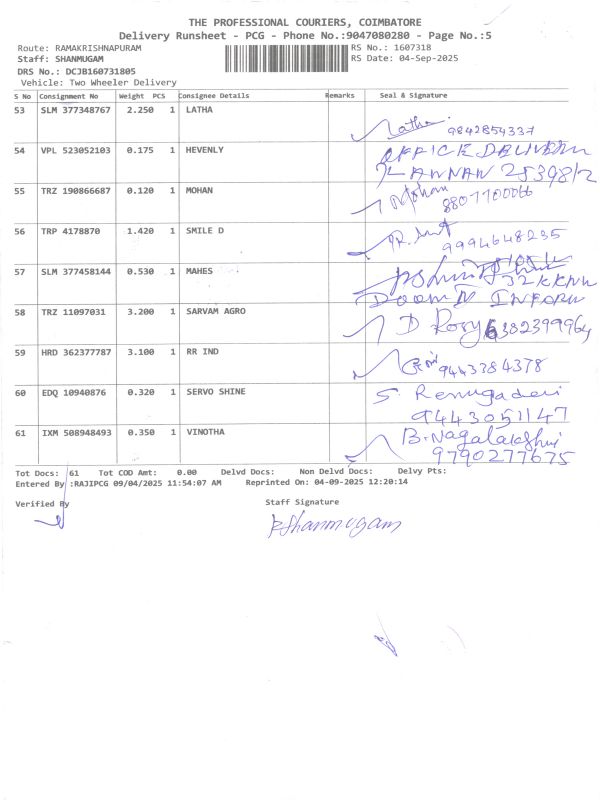 THE PROFESSIONAL COURIERS, COIMBATORE
Delivery Runsheet - PCG - Phone No.:9047080280 - Page No.:5
Route: RAMAKRISHNAPURAM RS No.: 1607318
Staff: SHANMUGAM RS Date: 04-Sep-2025
DRS No.: DCJB160731805
Vehicle: Two Wheeler Delivery
S No Consignment No Weight PCS Consignee Details Remarks Seal & Signature
53 SLM 377348767 2.250 1 LATHA
Latha 9842854337
54 VPL 523052103 0.175 1 HEVENLY OFFICE DELIVERY
KANNAN
55 TRZ 190866687 0.120 1 MOHAN Mohan
8807700066
56 TRP 4178870 1.420 1 SMILE D
9994648235
57 SLM 377458144 0.530 1 MAHES
INFORM
58 TRZ 11097031 3.200 1 SARVAM AGRO D Rosy 6382399964
59 HRD 362377787 3.100 1 RR IND
9443384378
60 EDQ 10940876 0.320 1 SERVO SHINE S. Renugadevi
9443051147
61 IXM 508948493 0.350 1 VINOTHA B. Nagalakshmi
9790277675
Tot Docs: 61 Tot COD Amt: 0.00 Delvd Docs: Non Delvd Docs: Delvy Pts:
Entered By :RAJIPCG 09/04/2025 11:54:07 AM Reprinted On: 04-09-2025 12:20:14
Verified By Staff Signature
K Shanmugam